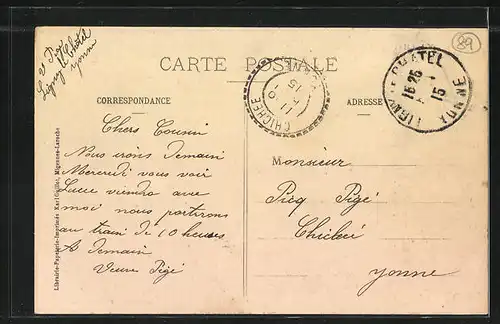 Vve Pigé
Ligny le Chatel
Yonne
89
CARTE POSTALE
CORRESPONDANCE
ADRESSE
CHICHÉE
LIGNY-LE-CHATEL
16 25
15
YONNE
Chers Cousin
Nous irons demain
Mercredi vous voir
Luce viendra avec
moi nous partirons
au train de 10 heures
A demain
Veuve Pigé
Monsieur
Picq Pigé
Chichéé
Yonne
Librairie-Papeterie-Imprimée Karl Guillot, Migennes-Laroche